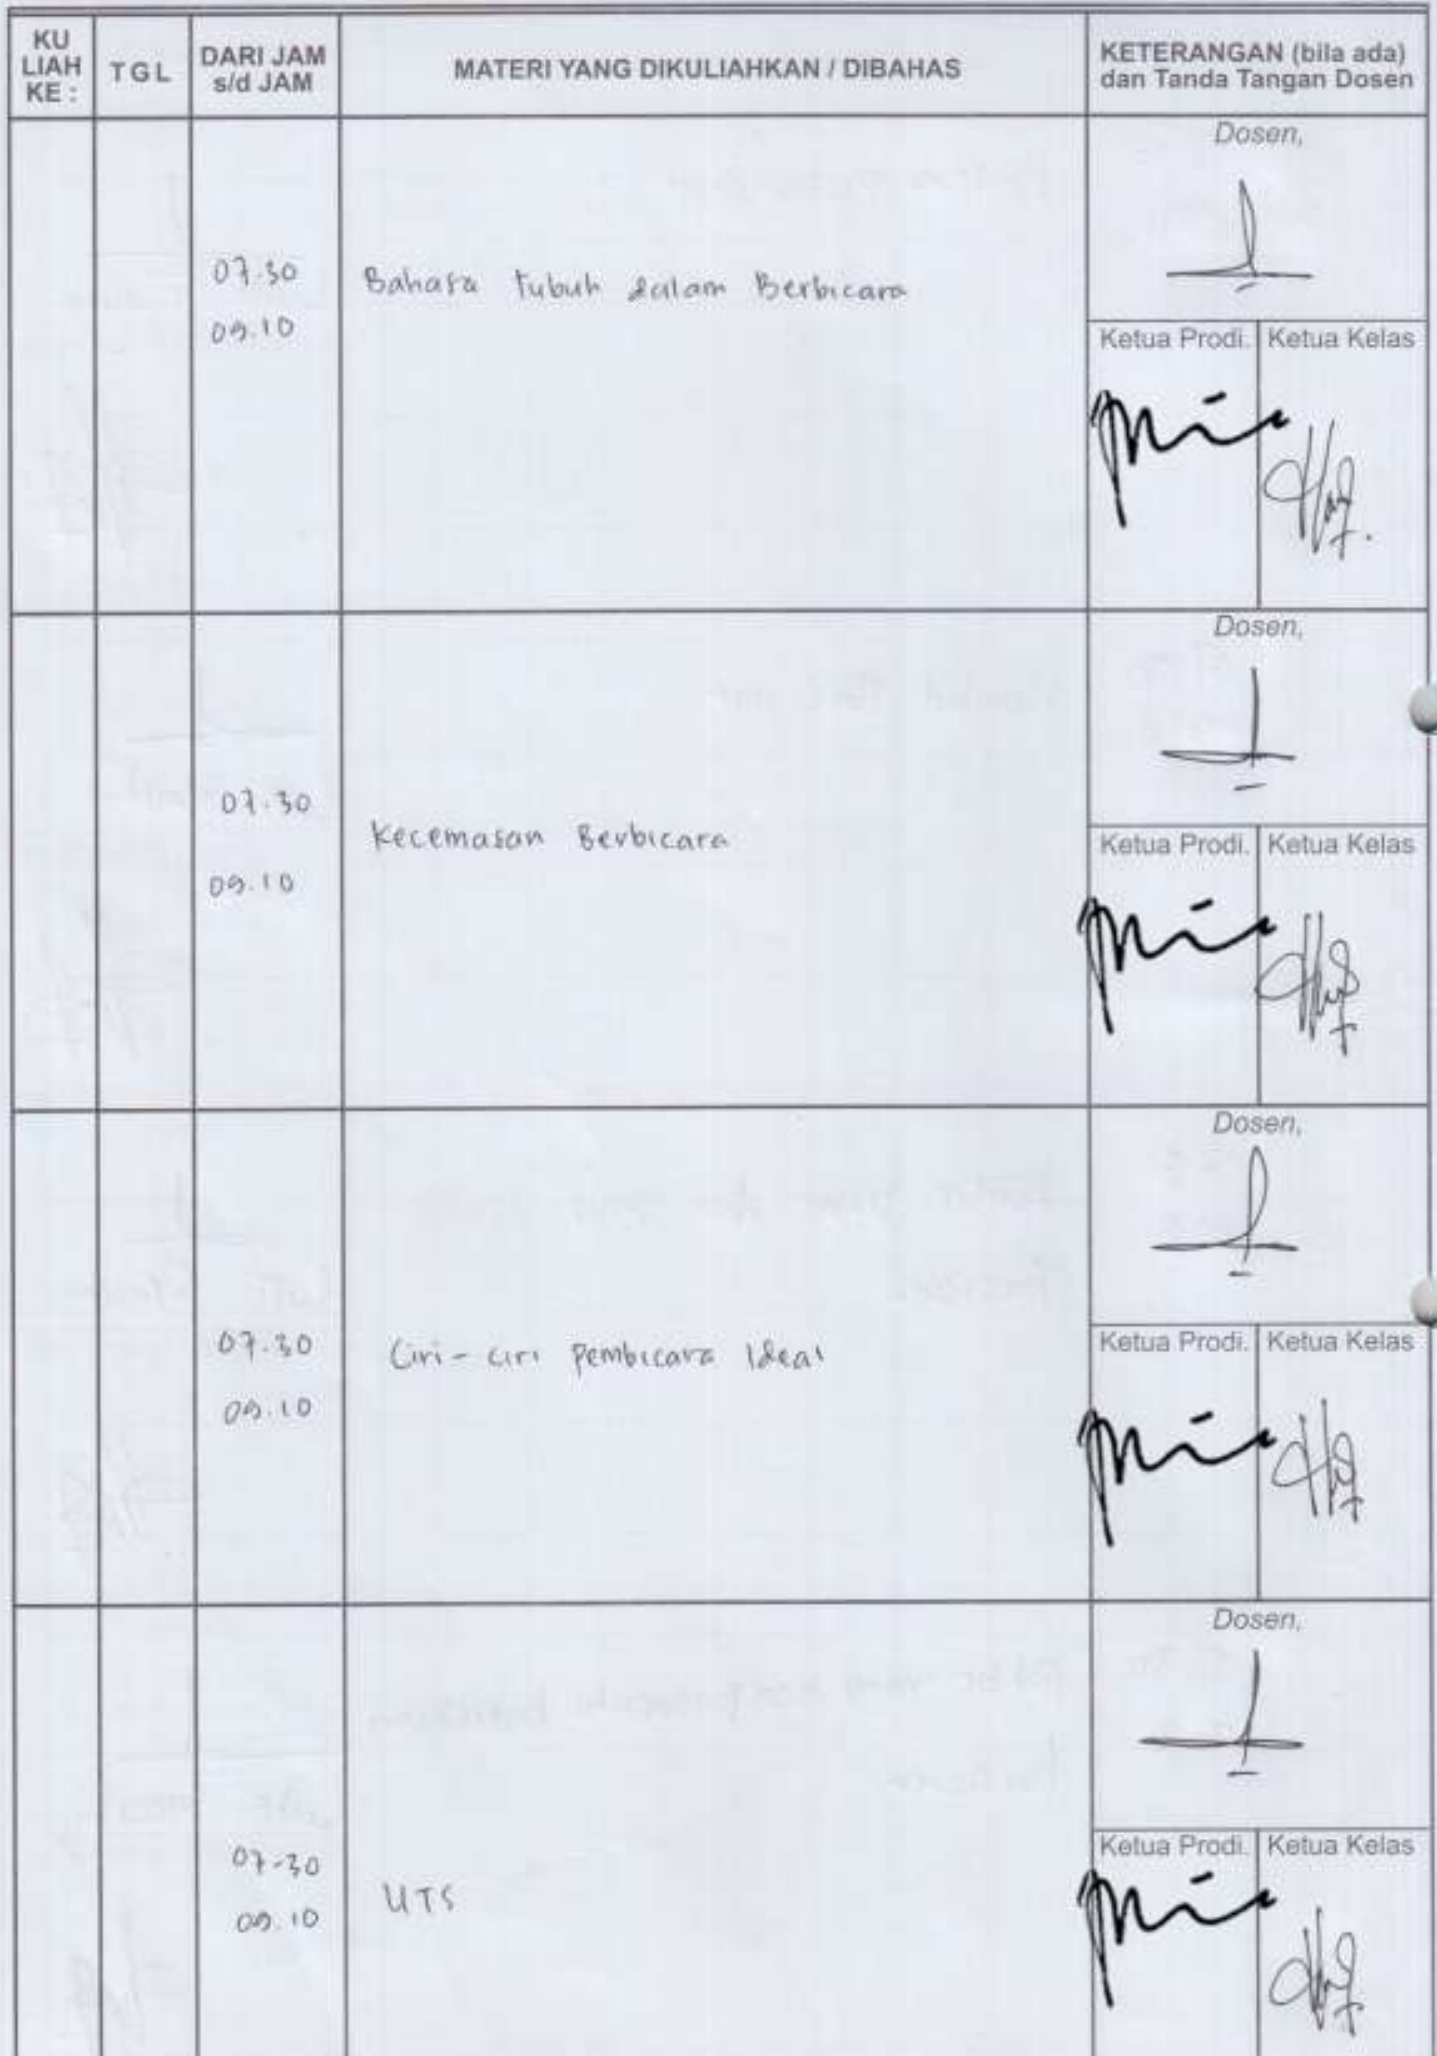 KU LIAH KE :
TGL
DARI JAM s/d JAM
MATERI YANG DIKULIAHKAN / DIBAHAS
KETERANGAN (bila ada) dan Tanda Tangan Dosen
Dosen,
07.30
09.10
Bahasa tubuh dalam Berbicara
Ketua Prodi. Ketua Kelas
Dosen,
07.30
09.10
Kecemasan Berbicara
Ketua Prodi. Ketua Kelas
Dosen,
07.30
09.10
Ciri-ciri Pembicara Ideal
Ketua Prodi. Ketua Kelas
Dosen,
07-30
09.10
UTS
Ketua Prodi. Ketua Kelas